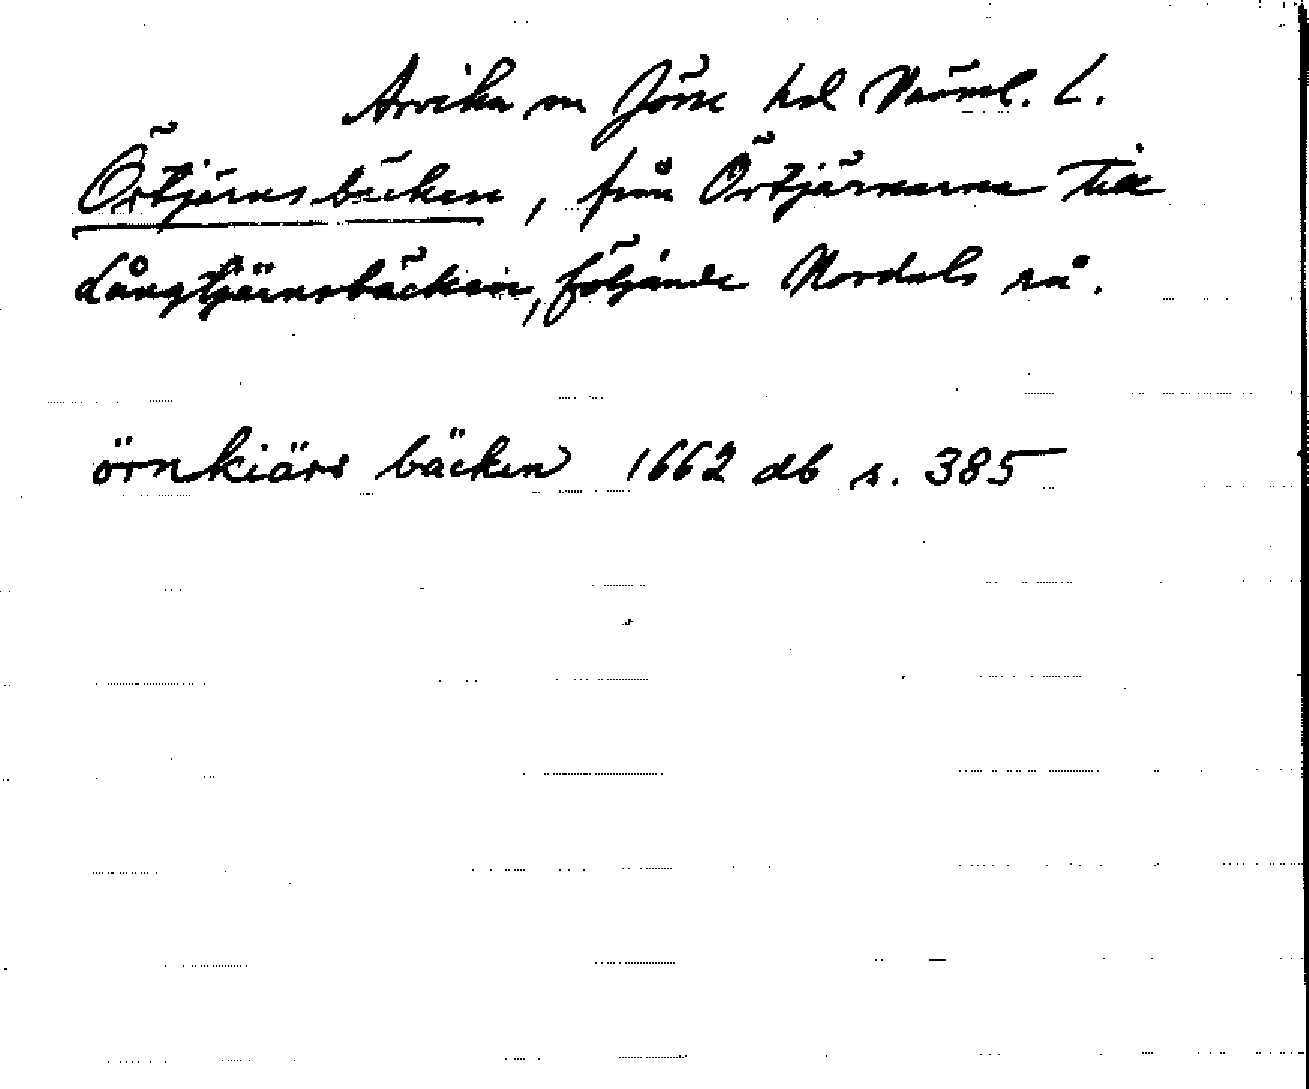 Arvika sn Jösse hd Värml. L.
Örtjärnsbäcken, från Örtjärnarna till
Långtjärnsbäcken, följande Nordals rå.
örnkiärs bäcken 1662 db s. 385